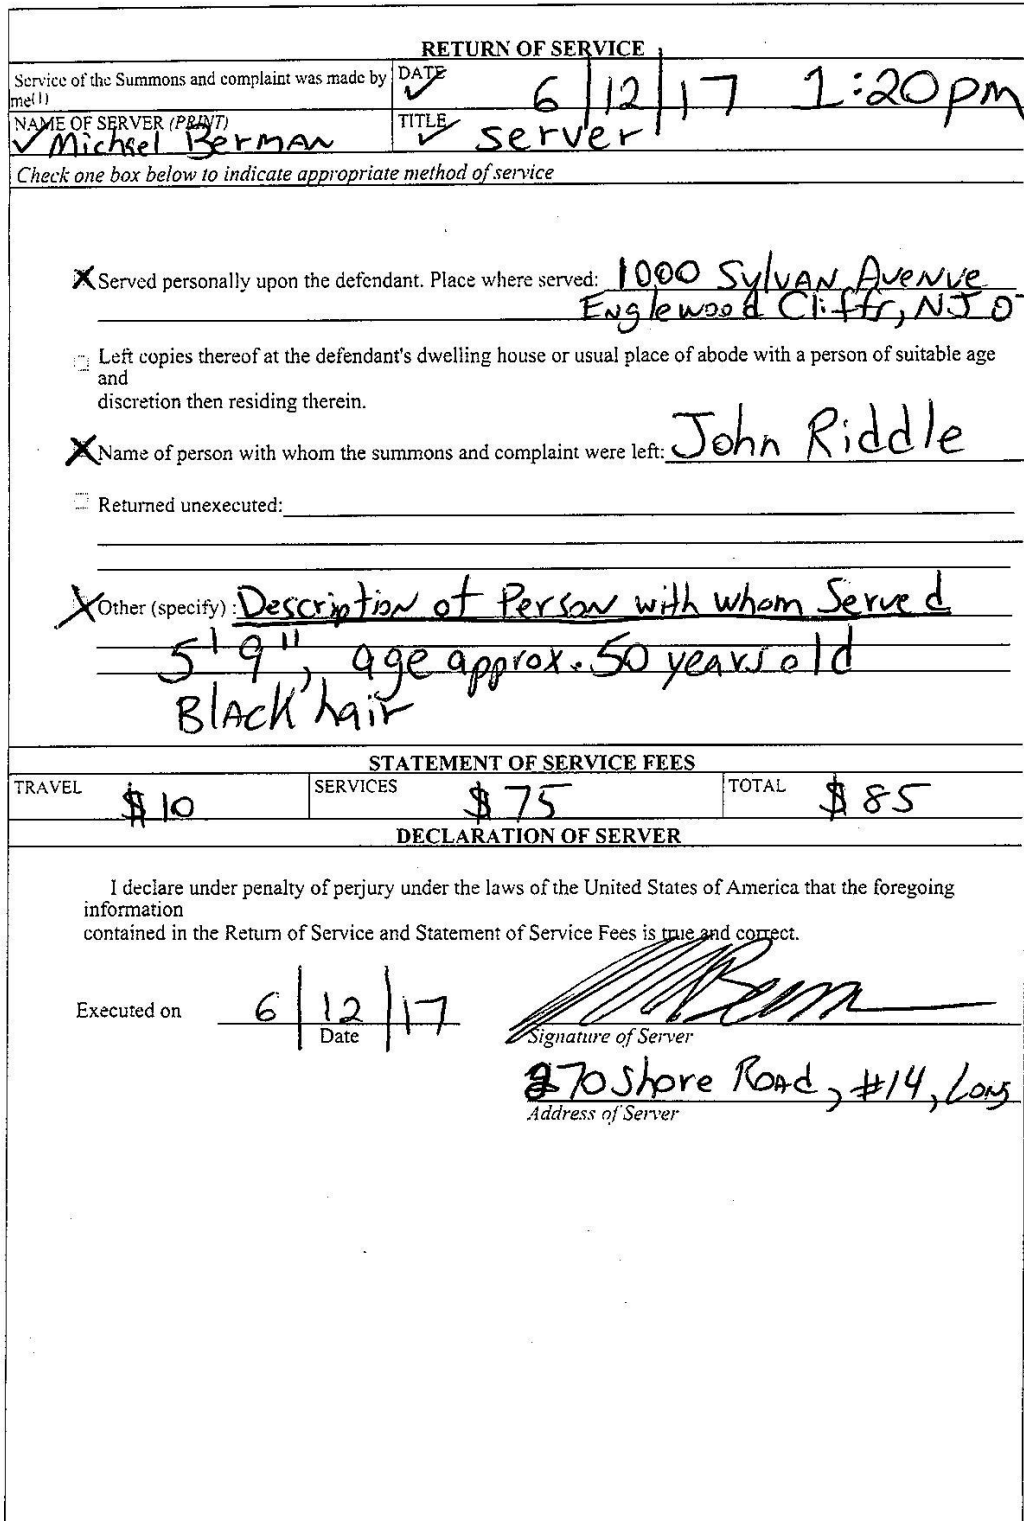 RETURN OF SERVICE
Service of the Summons and complaint was made by me(1)
DATE
6/12/17 1:20pm
NAME OF SERVER (PRINT)
Michael Berman
TITLE
server
Check one box below to indicate appropriate method of service
X Served personally upon the defendant. Place where served: 1000 Sylvan Avenue
Englewood Cliffs, NJ 0
Left copies thereof at the defendant's dwelling house or usual place of abode with a person of suitable age
and
discretion then residing therein.
X Name of person with whom the summons and complaint were left: John Riddle
Returned unexecuted:
X Other (specify) : Description of Person with whom Served
5'9", age approx. 50 years old
Black hair
STATEMENT OF SERVICE FEES
TRAVEL $10
SERVICES $75
TOTAL $85
DECLARATION OF SERVER
I declare under penalty of perjury under the laws of the United States of America that the foregoing
information
contained in the Return of Service and Statement of Service Fees is true and correct.
Executed on 6/12/17
Date
Signature of Server
270 Shore Road, #14, Long
Address of Server